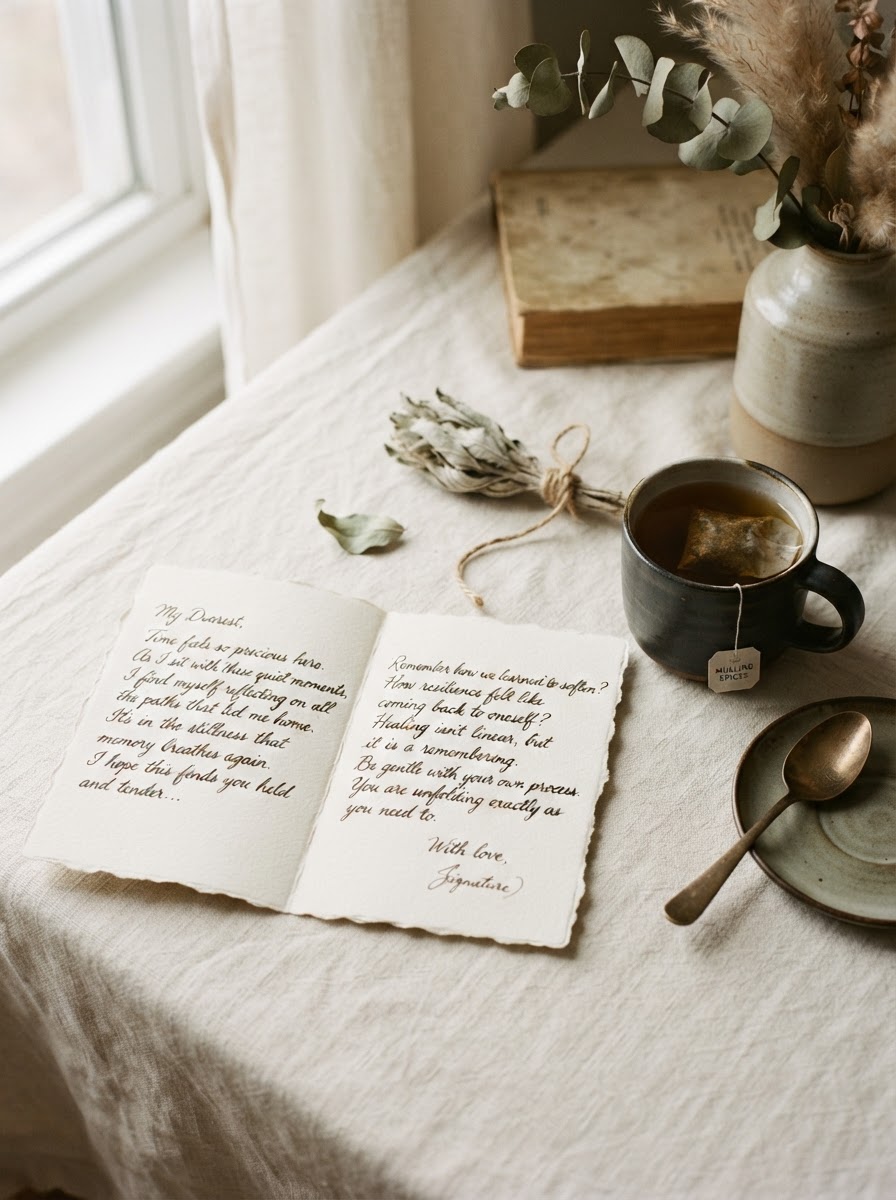 My Dearest,
Time feels so precious here.
As I sit with these quiet moments,
I find myself reflecting on all
the paths that led me home.
It's in the stillness that
memory breathes again.
I hope this finds you held
and tender...
Remember how we learned to soften?
How resilience felt like
coming back to oneself?
Healing isn't linear, but
it is a remembering.
Be gentle with your own process.
You are unfolding exactly as
you need to.
With love,
Signature)
MULLING
SPICES